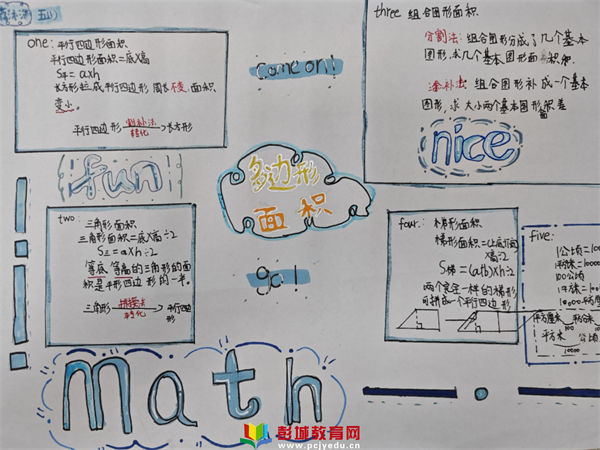 五(1)
one: 平行四边形面积
平行四边形面积=底X高
S平=axh
长方形拉成平行四边形 周长不变,面积
变小。
平行四边形 割补法 转化 长方形
come on!
three 组合图形面积
分割法: 组合图形分成了几个基本
图形,求几个基本图形面积和
添补法: 组合图形补成一个基本
图形,求大小两个基本图形面积差
nice
fun
多边形
面积
two: 三角形面积
三角形面积=底X高÷2
S三=axh÷2
等底等高的三角形的面
积是平行四边形的一半。
三角形 拼摆法 转化 平行四边
形
go!
four: 梯形面积
梯形面积=(上底+下底)
X高÷2
S梯=(a+b)xh÷2
两个完全一样的梯形
可拼成一个平行四边形
five:
1公顷=100
平方厘米
100
平方米
公顷
10000
math
彭城教育网
www.pcjyedu.cn